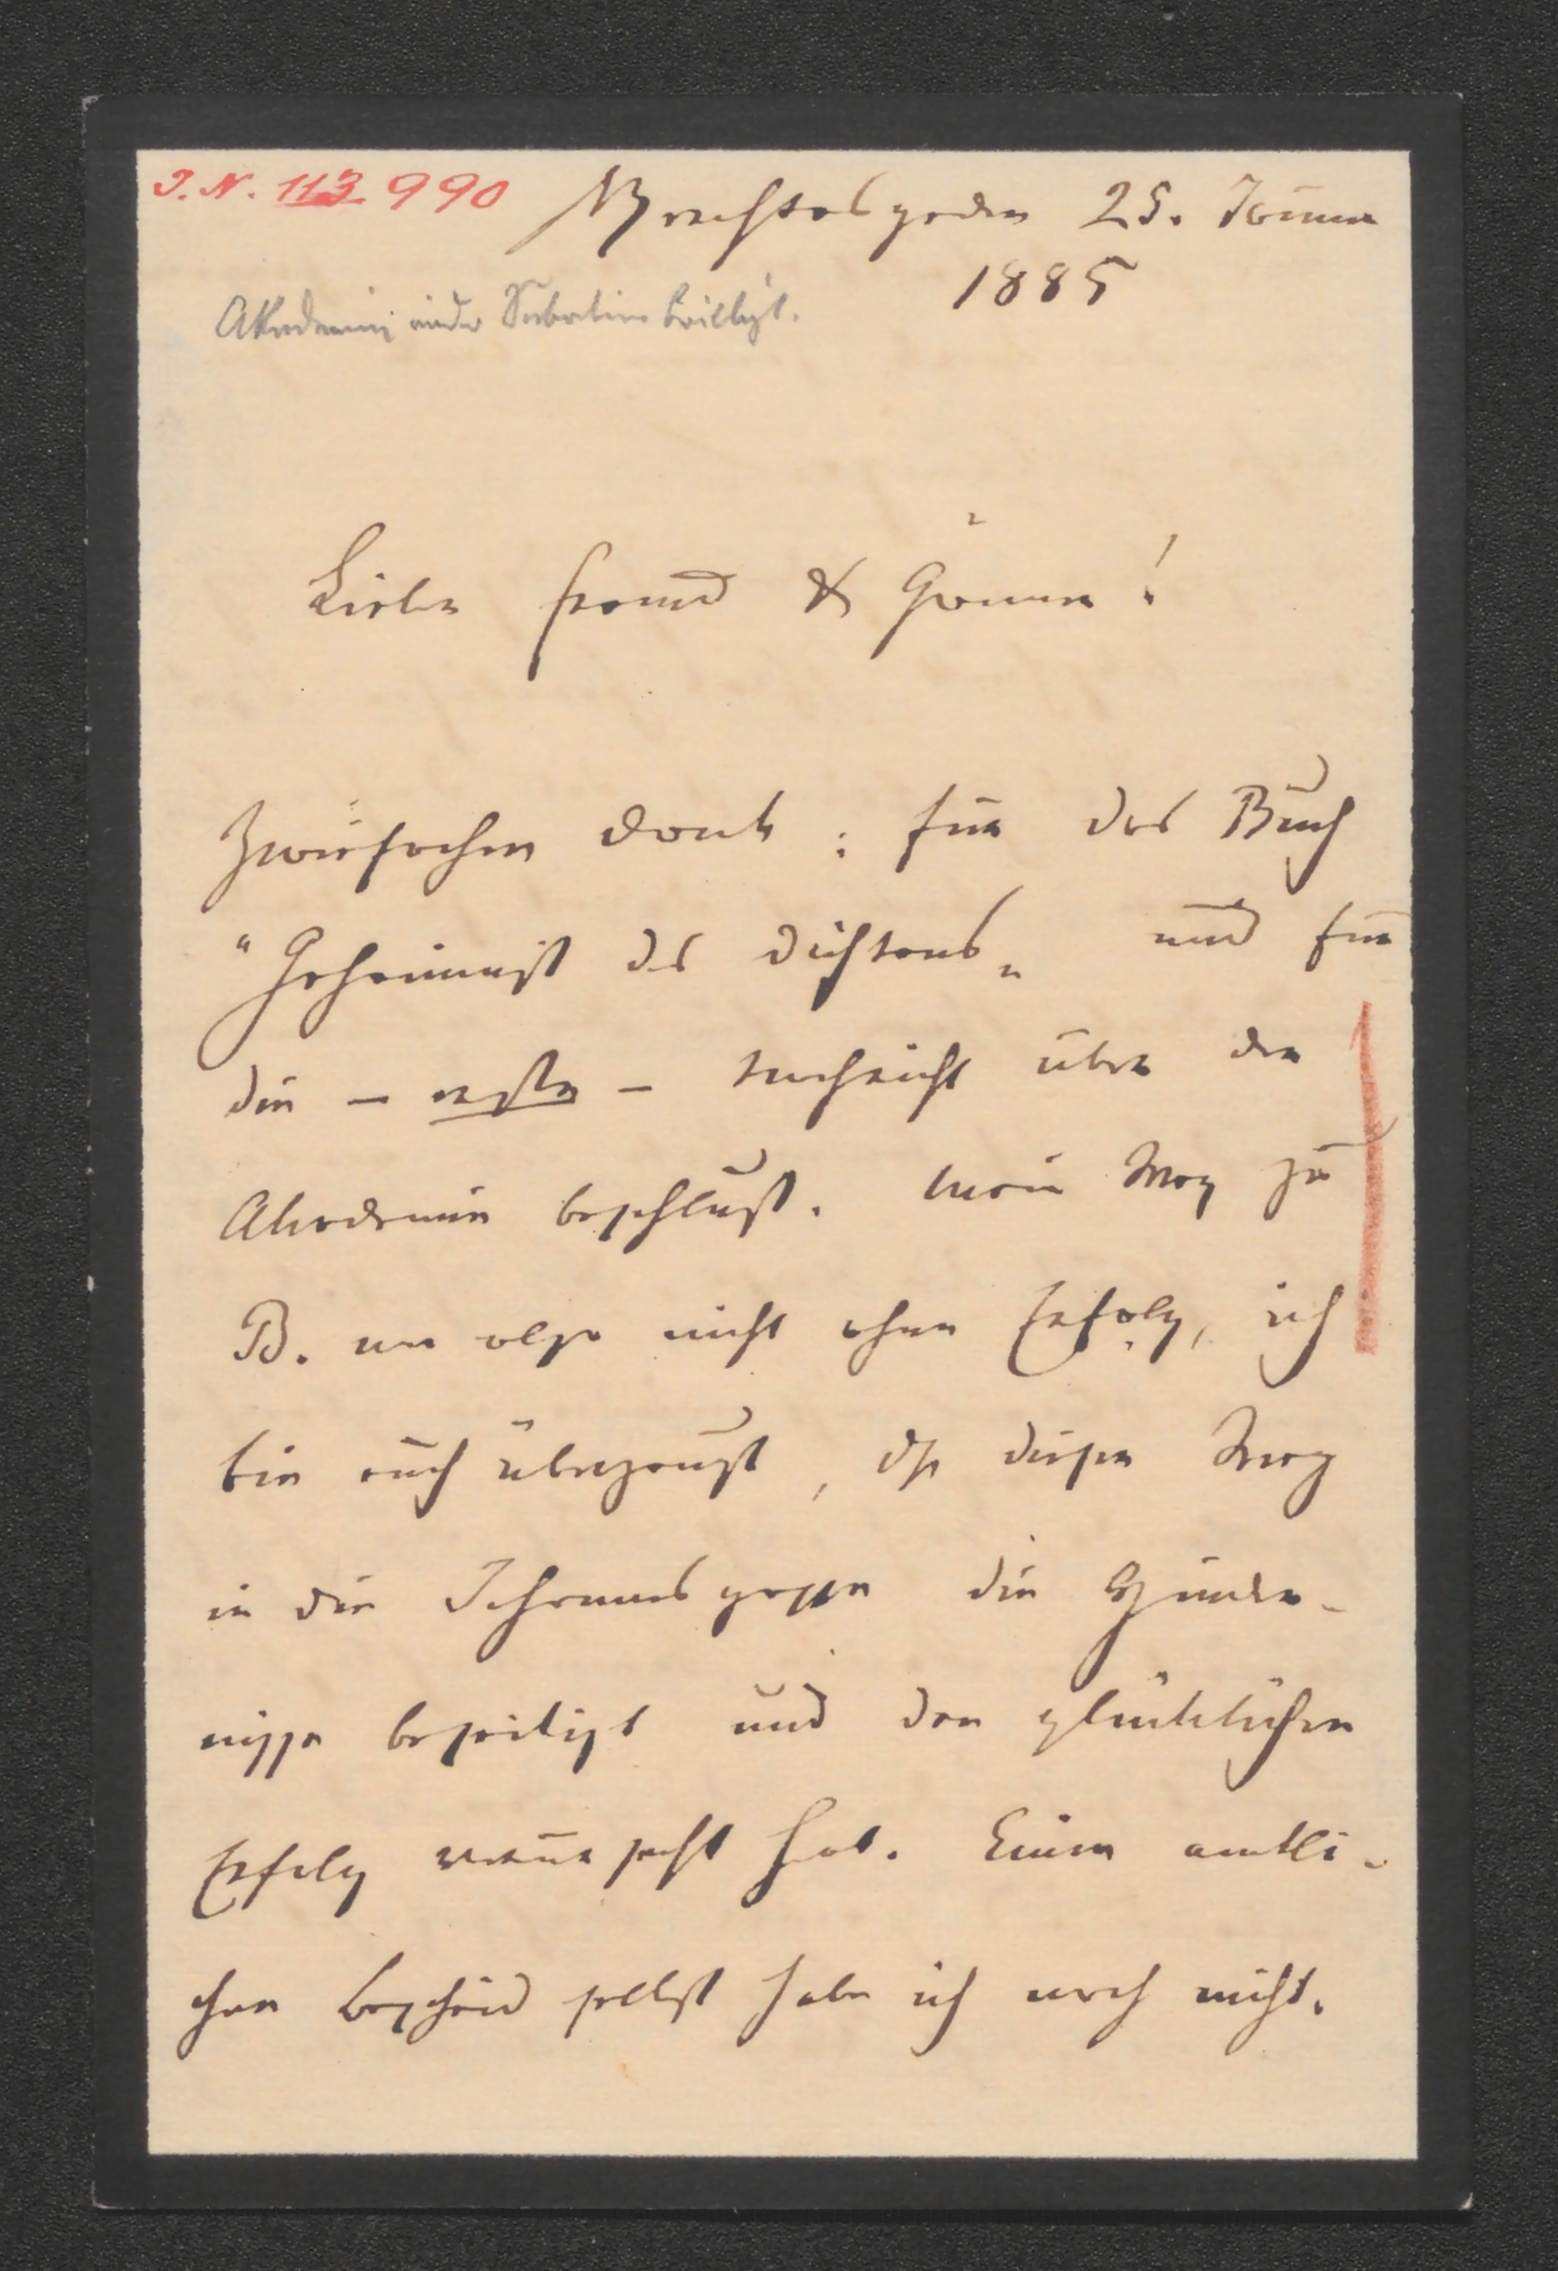 I. N. 113990
Berchtesgaden 25. Jänner
1885
Akademie Subvention bewilligt.
Lieber Freund & Gönner!
Zwiefachen Dank: für das Buch
"Geheimniß des Dichtens" und für
die – erste – Nachricht über den
Akademie beschluß. Mein Weg zu
B. war also nicht ohne Erfolg, ich
bin auch überzeugt, dß dieser Weg
in die Johannesgasse die Hinder-
nisse beseitigt und den glücklichen
Erfolg verursacht hat. Einen amtli-
chen Bescheid selbst habe ich noch nicht.